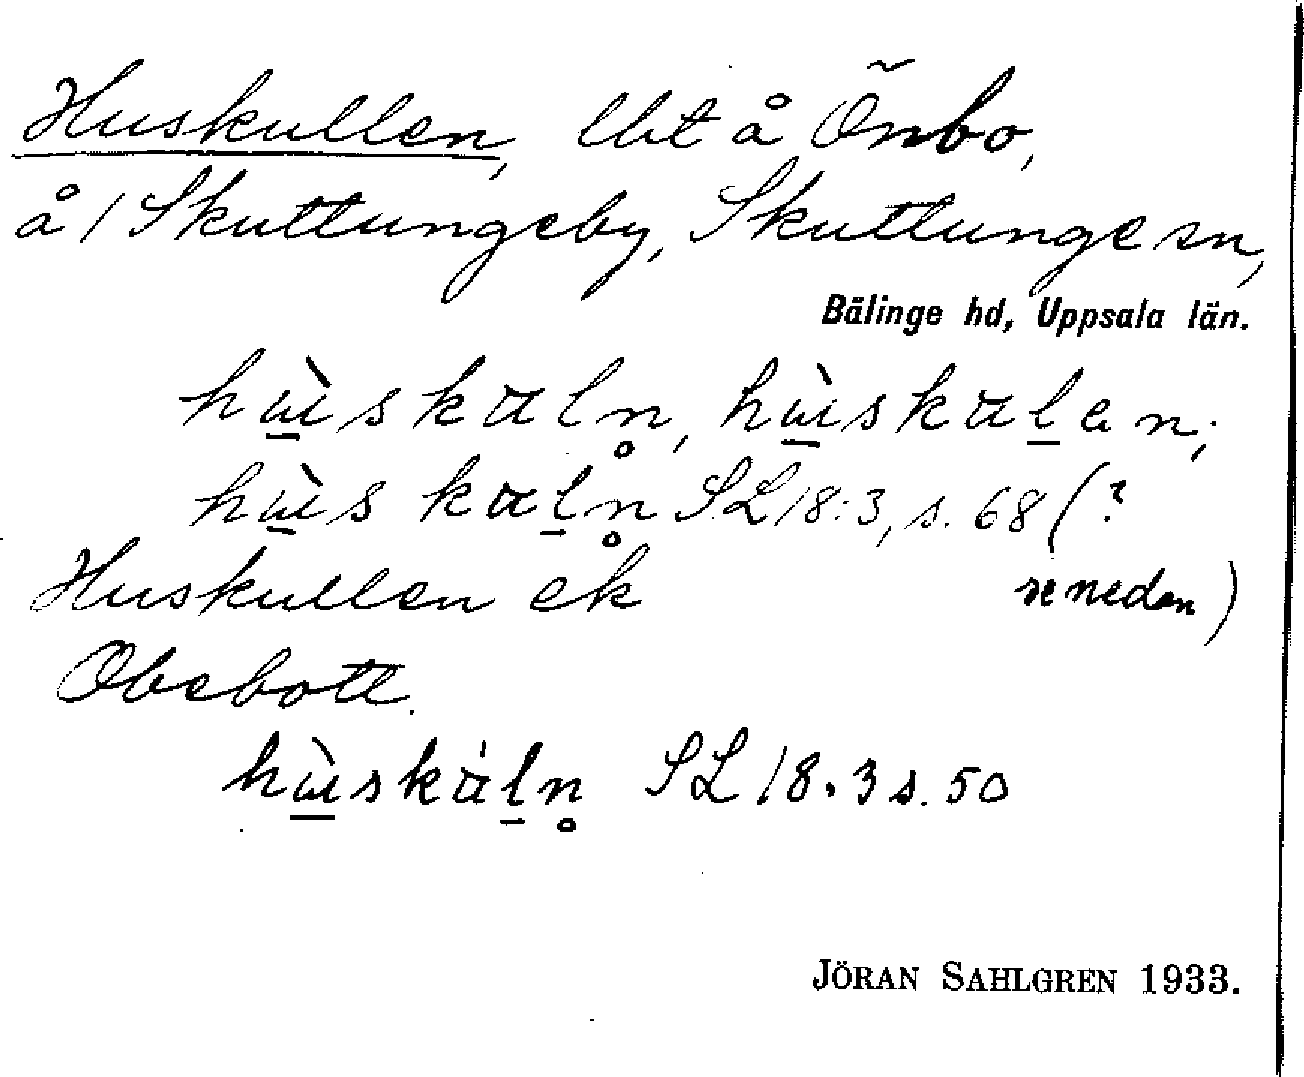 Huskullen, lht å Önbo,
å 1 Skuttungeby, Skuttunge sn,
Bälinge hd, Uppsala län.
hùskäln̥, hùskäl̠en;
hùskäl̠n̥ SL 18:3, s. 68 (?
se nedan)
Huskullen ek
Obebott.
hùskäl̠n̥ SL 18.3 s. 50
JÖRAN SAHLGREN 1933.